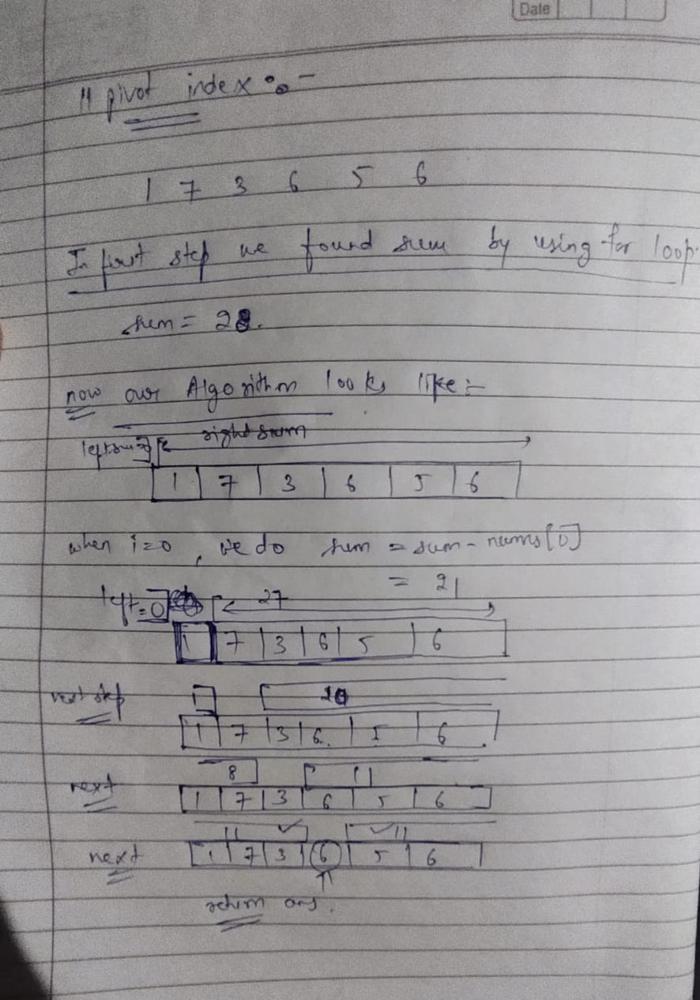 Date
11 pivot index :-
1 7 3 6 5 6
In first step we found sum by using for loop.
sum = 28.
now our Algorithm looks like :-
leftsum rightsum
1 7 3 6 5 6
when i=0, we do sum = sum - nums[0]
= 21
left=0 27
1 7 3 6 5 6
next step 1 20
1 7 3 6 5 6
8 11
next 1 7 3 6 5 6
11 ✓ ✓ 11
next 1 7 3 6 5 6
return ans.